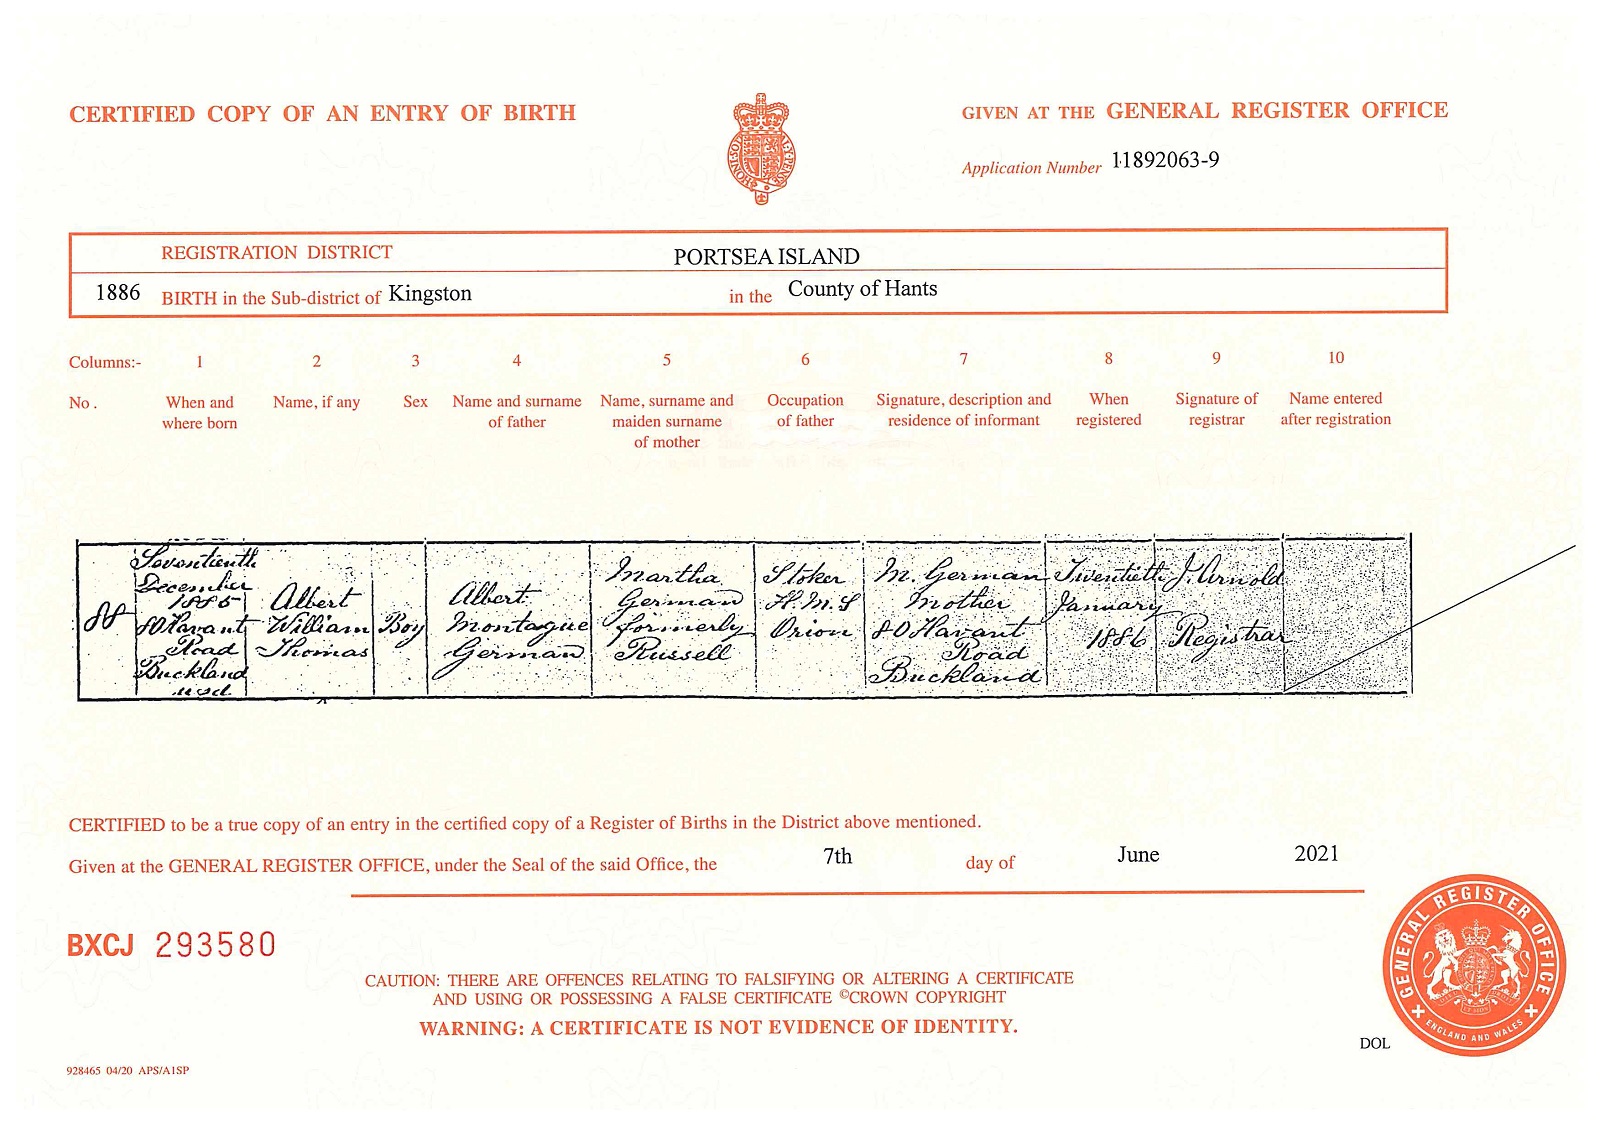 CERTIFIED COPY OF AN ENTRY OF BIRTH
GIVEN AT THE GENERAL REGISTER OFFICE
Application Number 11892063-9
REGISTRATION DISTRICT PORTSEA ISLAND
1886 BIRTH in the Sub-district of Kingston in the County of Hants
Columns:- 1 2 3 4 5 6 7 8 9 10
No. When and where born
Name, if any
Sex
Name and surname of father
Name, surname and maiden surname of mother
Occupation of father
Signature, description and residence of informant
When registered
Signature of registrar
Name entered after registration
88
Seventienth
December
1885
80 Havant
Road
Buckland
usd
Albert
William
Thomas
Boy
Albert
Montague
German
Martha
German
formerly
Russell
Stoker
H.M.S
Orion
M. German
Mother
80 Havant
Road
Buckland
Twentieth
January
1886
J. Arnold
Registrar
CERTIFIED to be a true copy of an entry in the certified copy of a Register of Births in the District above mentioned.
Given at the GENERAL REGISTER OFFICE, under the Seal of the said Office, the 7th day of June 2021
BXCJ 293580
CAUTION: THERE ARE OFFENCES RELATING TO FALSIFYING OR ALTERING A CERTIFICATE
AND USING OR POSSESSING A FALSE CERTIFICATE ©CROWN COPYRIGHT
WARNING: A CERTIFICATE IS NOT EVIDENCE OF IDENTITY.
GENERAL REGISTER OFFICE
ENGLAND AND WALES
DOL
928465 04/20 APS/A1SP